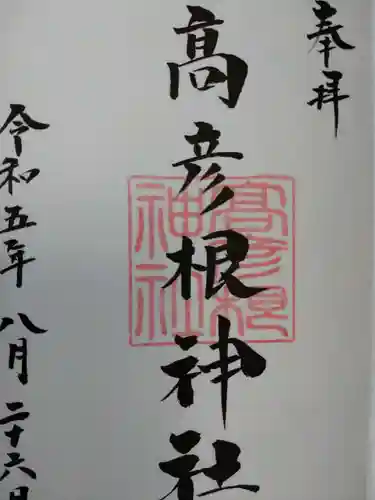 奉拝
髙彦根神社
高彦根
神社
令和五年八月二十六日